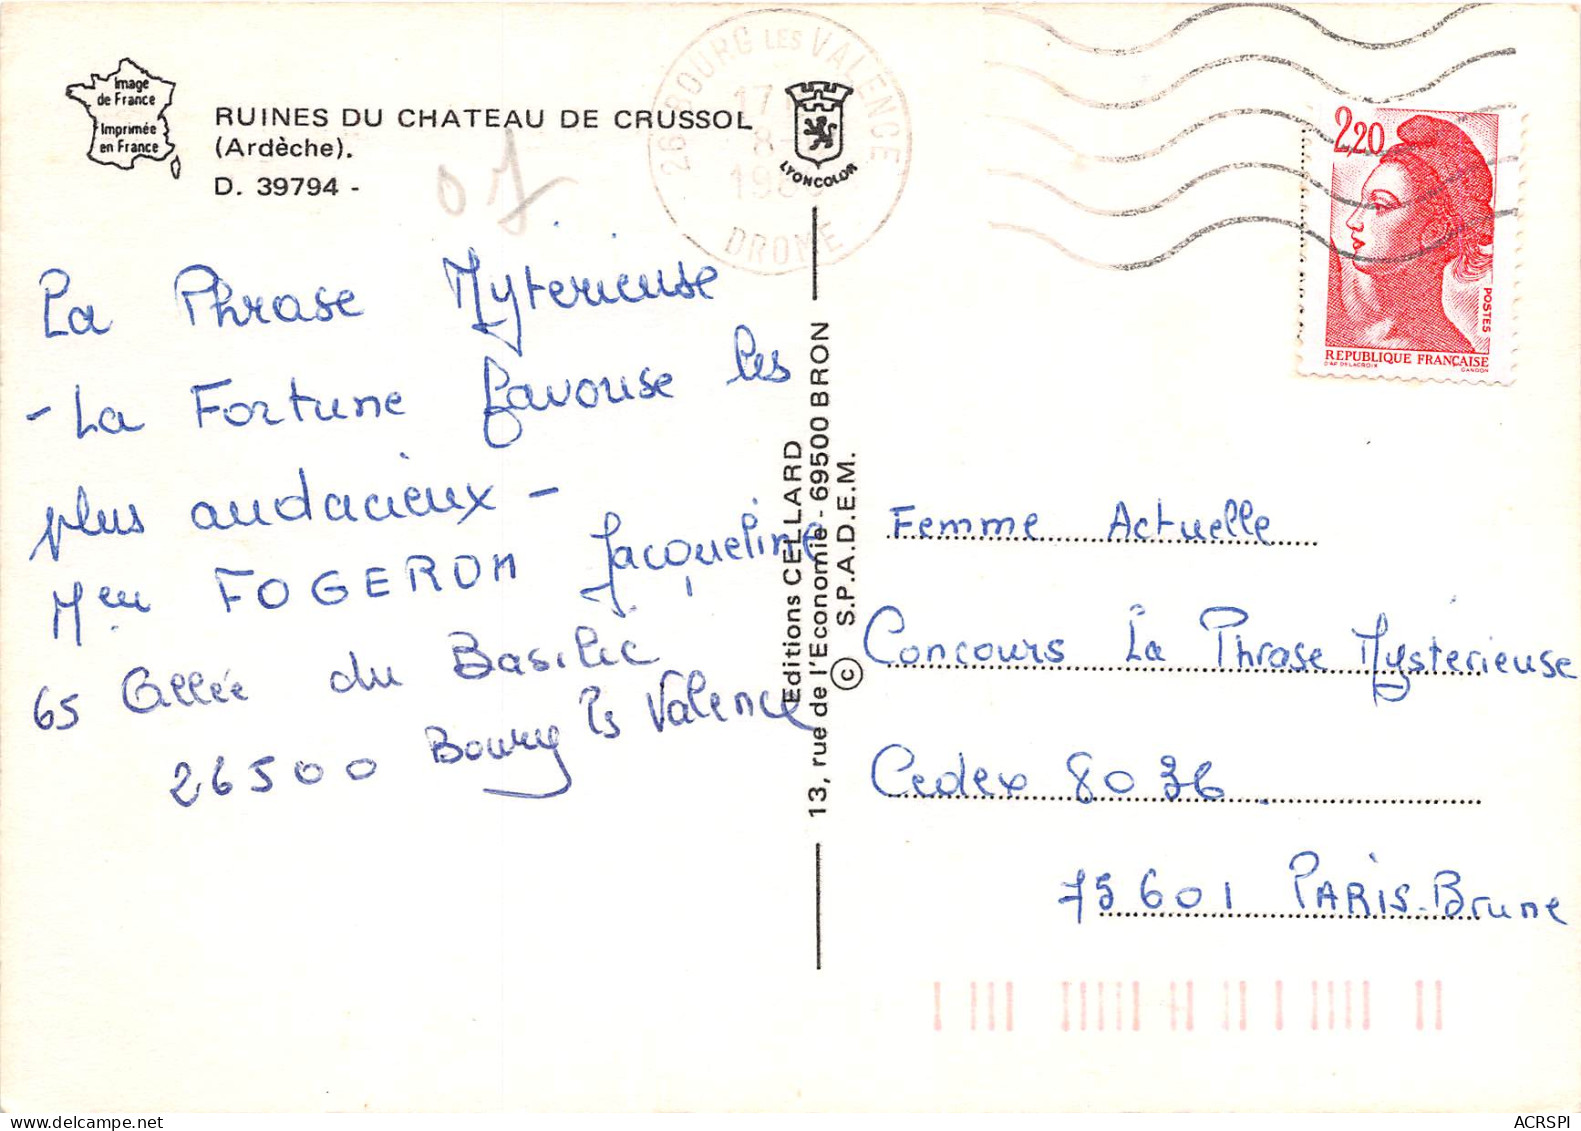 Image
de France
Imprimée
en France
RUINES DU CHATEAU DE CRUSSOL
(Ardèche).
D. 39794 -
07
26 BOURG LES VALENCE
17
8
DROME
LYONCOLOR
2,20
POSTES
REPUBLIQUE FRANÇAISE
D'AP. DELACROIX GANDON
La Phrase Mytérieuse
- La Fortune favorise les
plus audacieux -
Mme FOGERON Jacqueline
65 Allée du Basilic
26500 Bourg ls Valence
Editions CELLARD
13, rue de l'Economie - 69500 BRON
© S.P.A.D.E.M.
Femme Actuelle
Concours La Phrase Mysterieuse
Cedex 8036
75601 PARIS-Brune
ACRSPI